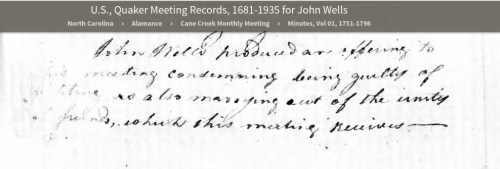 U.S., Quaker Meeting Records, 1681-1935 for John Wells
North Carolina > Alamance > Cane Creek Monthly Meeting > Minutes, Vol 01, 1751-1796
John Wells produced an offering to
meeting condemning being guilty of
as also marrying out of the unity
friends, which this meeting receives —